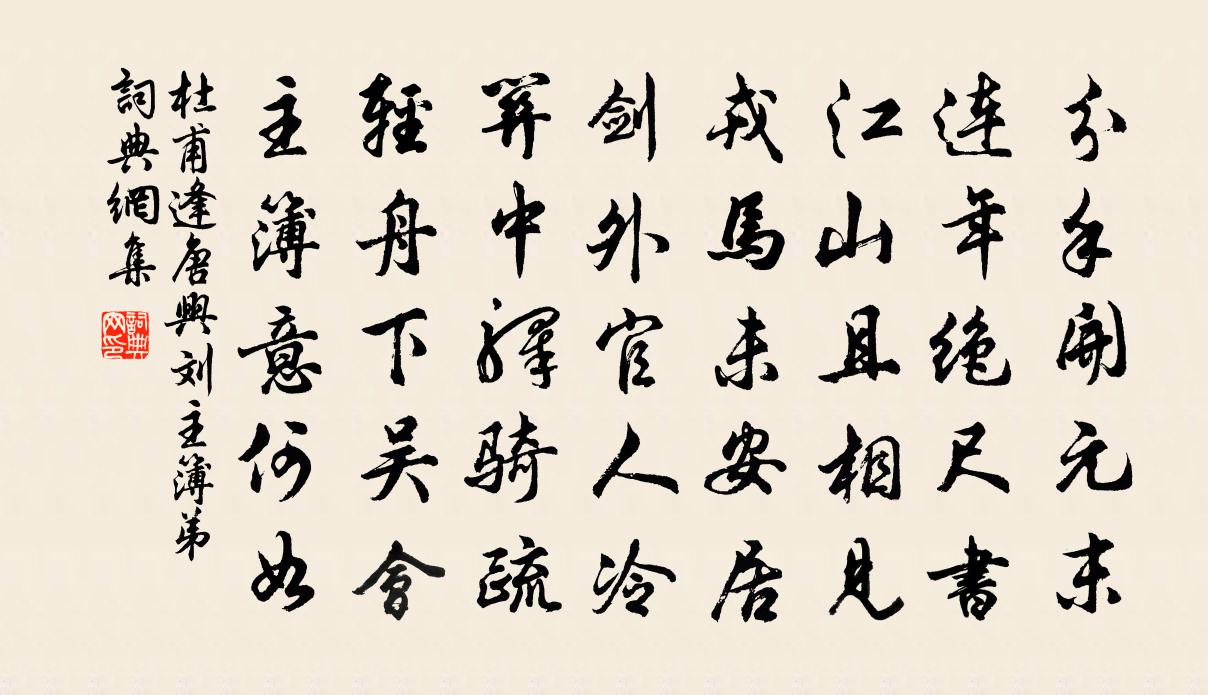 分手開元末
連年绝尺書
江山且相見
戎馬未安居
劍外官人冷
關中驛騎疏
輕舟下吴會
主簿意何如
杜甫逢唐興刘主簿弟
詞典網集
詞典网印